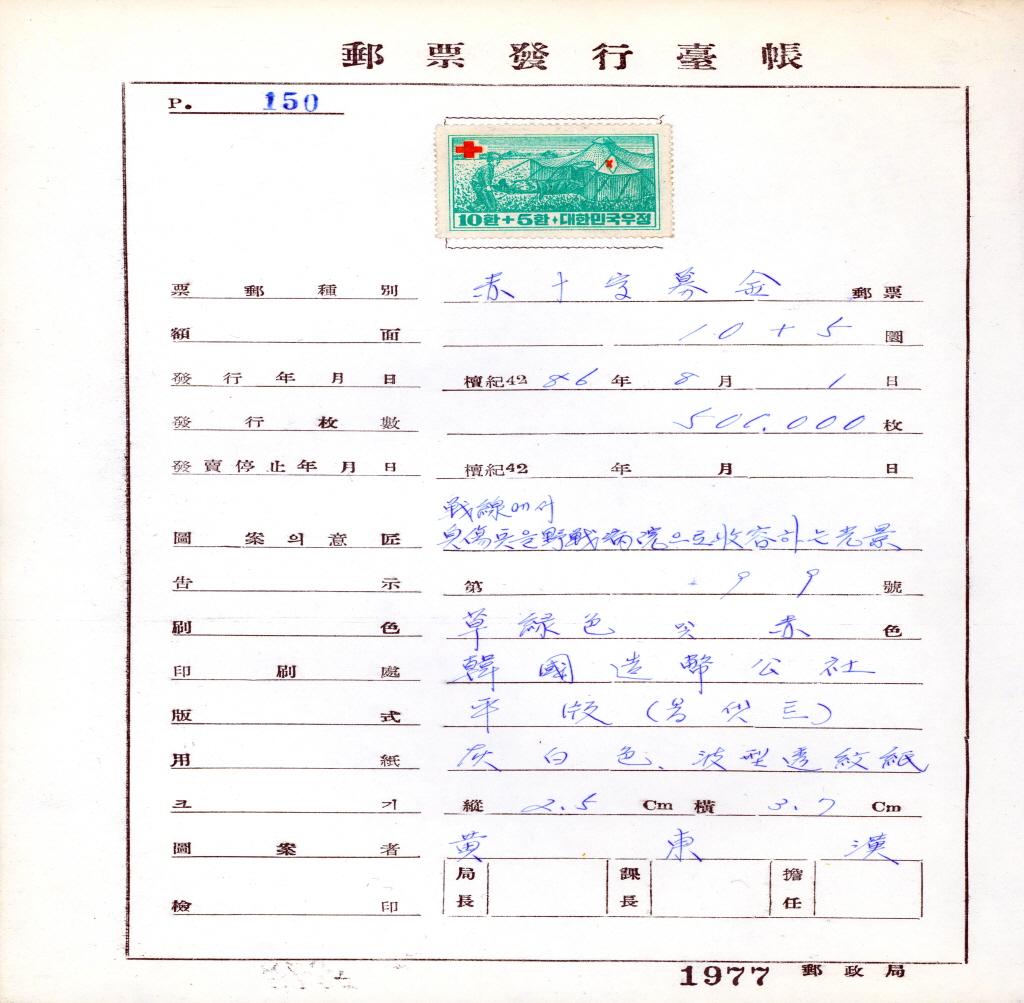 郵票發行臺帳
P. 150
10환+5환·대한민국우정
票郵種別 赤十字募金 郵票
額面 10+5 圜
發行年月日 檀紀4286年 8月 1日
發行枚數 500.000 枚
發賣停止年月日 檀紀42 年 月 日
戰線에서
圖案의意匠 負傷兵을野戰病院으로收容하는光景
告示 第 99 號
刷色 草綠色 및 赤 色
印刷處 韓國造幣公社
版式 平版
用紙 灰白色、波型透紋紙
크기 縱 2.5 Cm 橫 3.7 Cm
圖案者 黃東漢
檢印 局長 課長 擔任
1977 郵政局